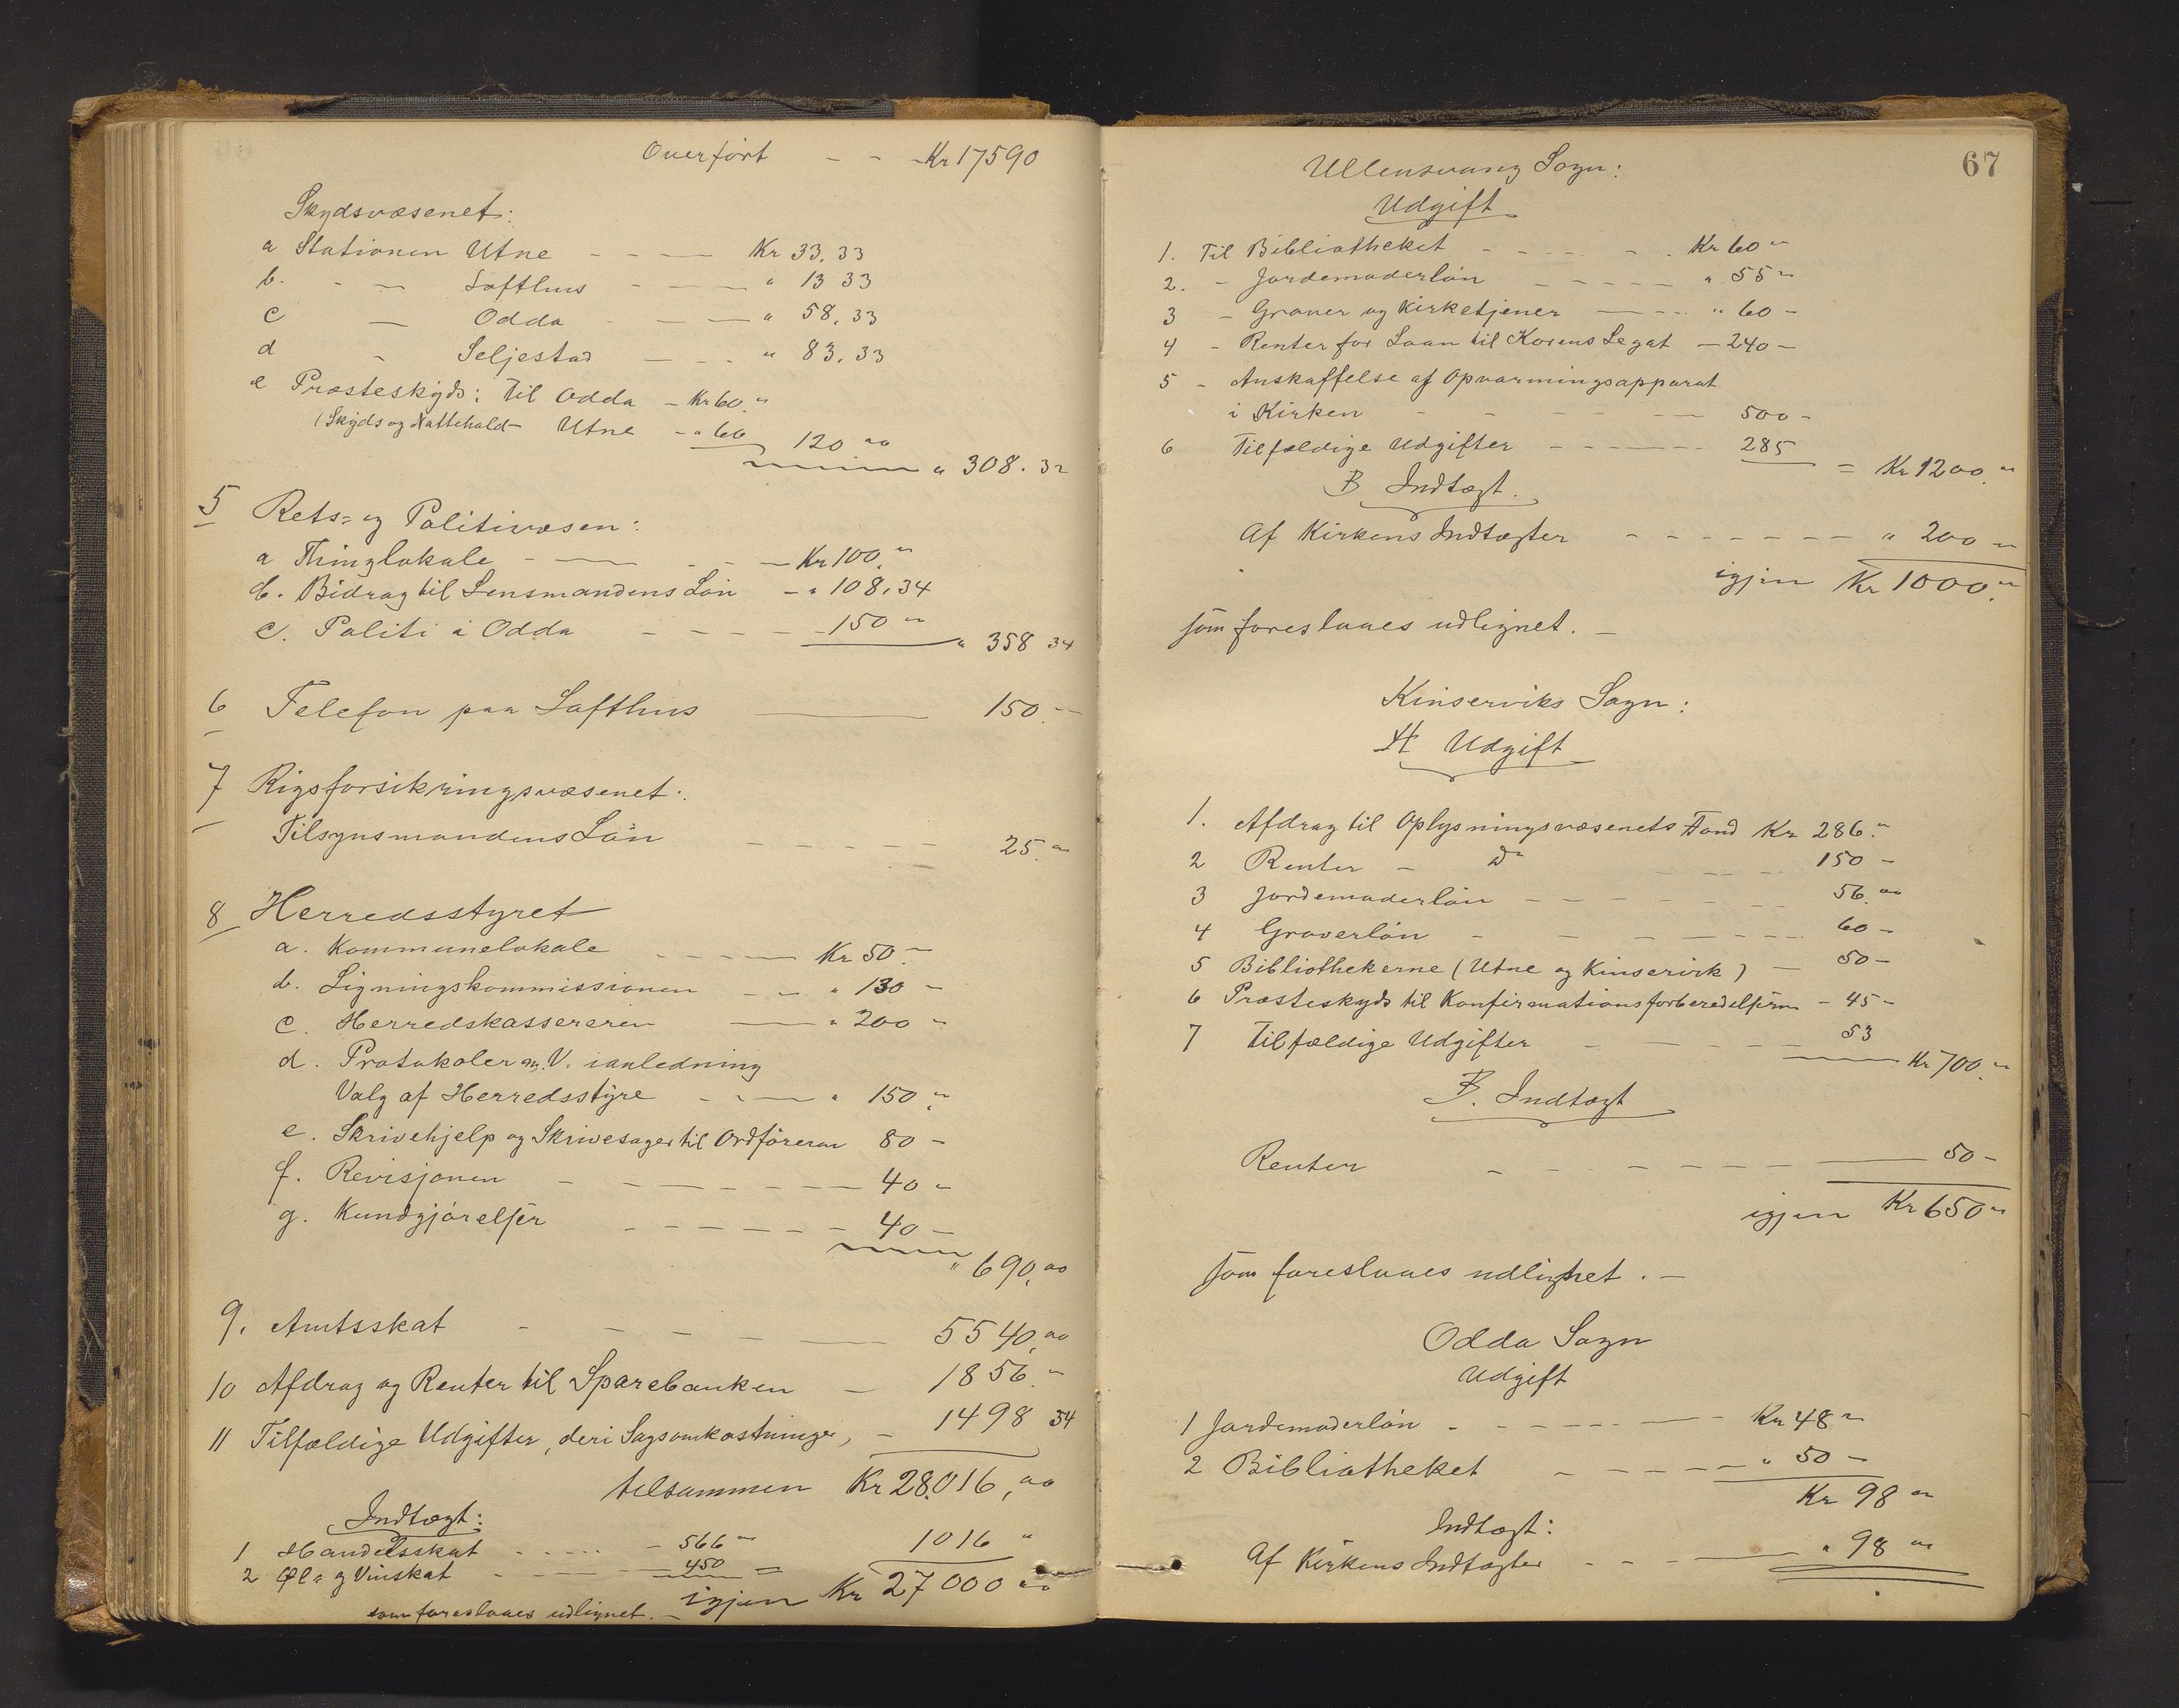 Overført - - - Kr 17590
Skydsvæsenet:
a Stationen Utne - - - Kr 33,33
b. - - Lofthus - - - " 13 33
c - Odda - - - " 58,33
d - Seljestad - - - " 83,33
e Præsteskyds: til Odda - Kr 60,"
(Skyds og Nattehold - Utne - " 60 120 00
" 308.32
5 Rets- og Politivæsen:
a Thinglokale - - - Kr 100,"
b. Bidrag til Lensmandens Løn - " 108,34
c. Politi i Odda - - - 150 "
" 358 34
6 Telefon paa Lofthus - 150."
7 Rigsforsikringsvæsenet:
Tilsynsmandens Løn - - - - 25."
8 Herredsstyret
a. Kommunelokale - - - Kr 50.-
b. Ligningskommissionen - - " 130 -
c. Herredskassereren - " 200 -
d. Protokoler m. V. i anledning
Valg af Herredsstyre - - - " 150 "
e. Skrivehjelp og Skrivesager til Ordføreren 80 -
f. Revisjonen - - - - - 40 -
g. Kundgjørelser - - - - - 40 -
" 690,00
9. Amtsskat - - - - - 5540,00
10 Afdrag og Renter til Sparebanken - 1856."
11 Tilfældige Udgifter, deri Sagsomkostninger, - 1498 34
tilsammen Kr 28016,00
Indtægt:
1 Handelsskat - - - - 566 " 1016 "
2 Øl- og Vinskat - - - - 450 =
igjen Kr 27000 00
som foreslaaes udlignet. -
67
Ullensvang Sogn:
Udgift
1. Til Bibliotheket - - - - Kr 60 "
2. - Jordemoderløn - - - - " 55 "
3 - Graver og Kirketjener - - - " 60 -
4 - Renter for Laan til Korens Legat - 240 -
5 - Anskaffelse af Opvarmingsapparat
i Kirken - - - - 500 -
6 Tilfældige Udgifter - - - - 285
= Kr 1200."
B Indtægt.
Af Kirkens Indtægter - - - - " 200 "
igjen Kr 1000."
som foreslaaes udlignet. -
Kinserviks Sogn:
A Udgift
1. Afdrag til Oplysningsvæsenets Fond Kr 286."
2 Renter - Do - - - 150 -
3 Jordemoderløn - - - - - 56,00
4 Graverløn - - - - - 60 -
5 Bibliothekerne (Utne og Kinservik) - 50 -
6 Præsteskyds til Konfirmationsforberedelsen - 45 -
7 Tilfældige Udgifter - - - - 53
Kr 700."
B. Indtægt
Renter - - - - - 50 -
igjen Kr 650 "
som foreslaaes udlignet. -
Odda Sogn
Udgift
1 Jordemoderløn - - - - Kr 48 "
2 Bibliotheket - - - - " 50 -
Kr 98 "
Indtægt:
Af Kirkens Indtægter - - - " 98 "